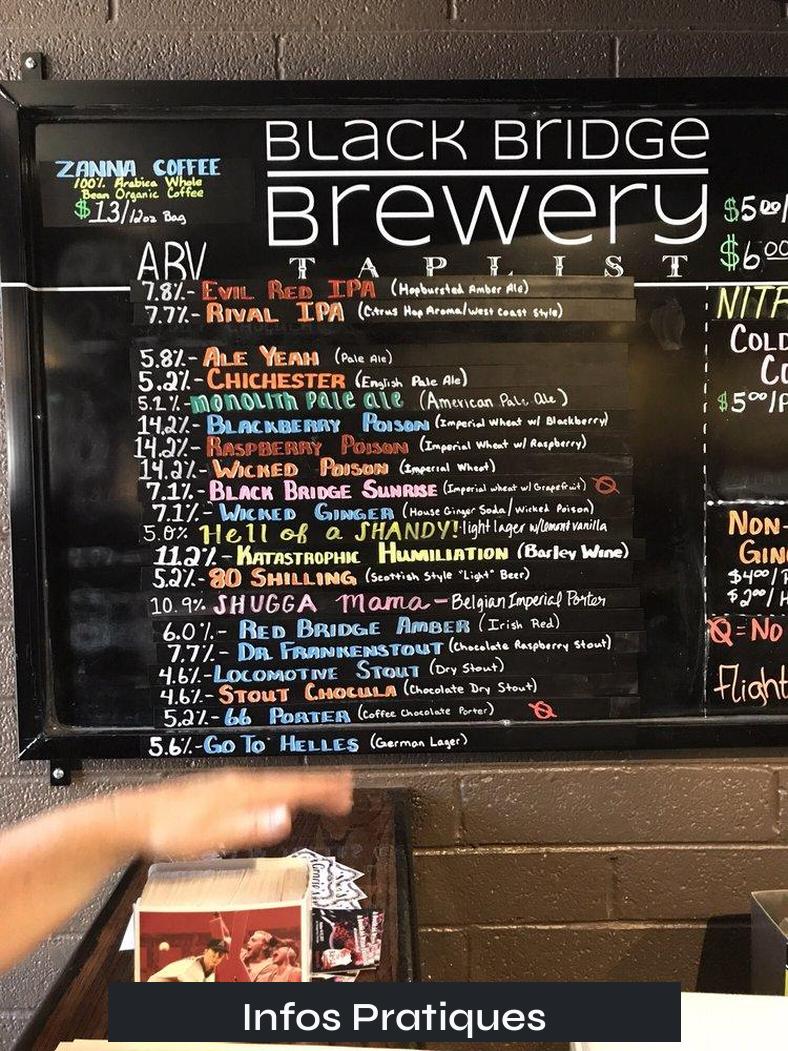 BLACK BRIDGE
BREWERY
TAPLIST
ZANNA COFFEE
100% Arabica Whole
Bean Organic Coffee
$13/12oz Bag
ABV
7.8%-EVIL RED IPA (Hopbursted Amber Ale)
7.7%-RIVAL IPA (Citrus Hop Aroma/West Coast Style)
5.8%-ALE YEAH (Pale Ale)
5.2%-CHICHESTER (English Pale Ale)
5.1%-MONOLITH PALE ALE (American Pale Ale)
14.2%-BLACKBERRY POISON (Imperial Wheat w/ Blackberry)
14.2%-RASPBERRY POISON (Imperial Wheat w/ Raspberry)
14.2%-WICKED POISON (Imperial Wheat)
7.1%-BLACK BRIDGE SUNRISE (Imperial wheat w/ Grapefruit)
7.1%-WICKED GINGER (House Ginger Soda/Wicked Poison)
5.0% Hell of a SHANDY! light lager w/lemon+vanilla
11.2%-KATASTROPHIC HUMILIATION (Barley Wine)
5.2%-80 SHILLING (Scottish Style "Light" Beer)
10.9% SHUGGA Mama-Belgian Imperial Porter
6.0%-RED BRIDGE AMBER (Irish Red)
7.7%-DR. FRANKENSTOUT (Chocolate Raspberry Stout)
4.6%-LOCOMOTIVE STOUT (Dry Stout)
4.6%-STOUT CHOCULA (Chocolate Dry Stout)
5.2%-66 PORTER (Coffee Chocolate Porter)
5.6%-GO TO HELLES (German Lager)
$5.00/
$6.00
NITR
COLD
Co
$5.00/P
NON-
GIN
$4.00/P
$2.00/H
=NO
flight
Infos Pratiques